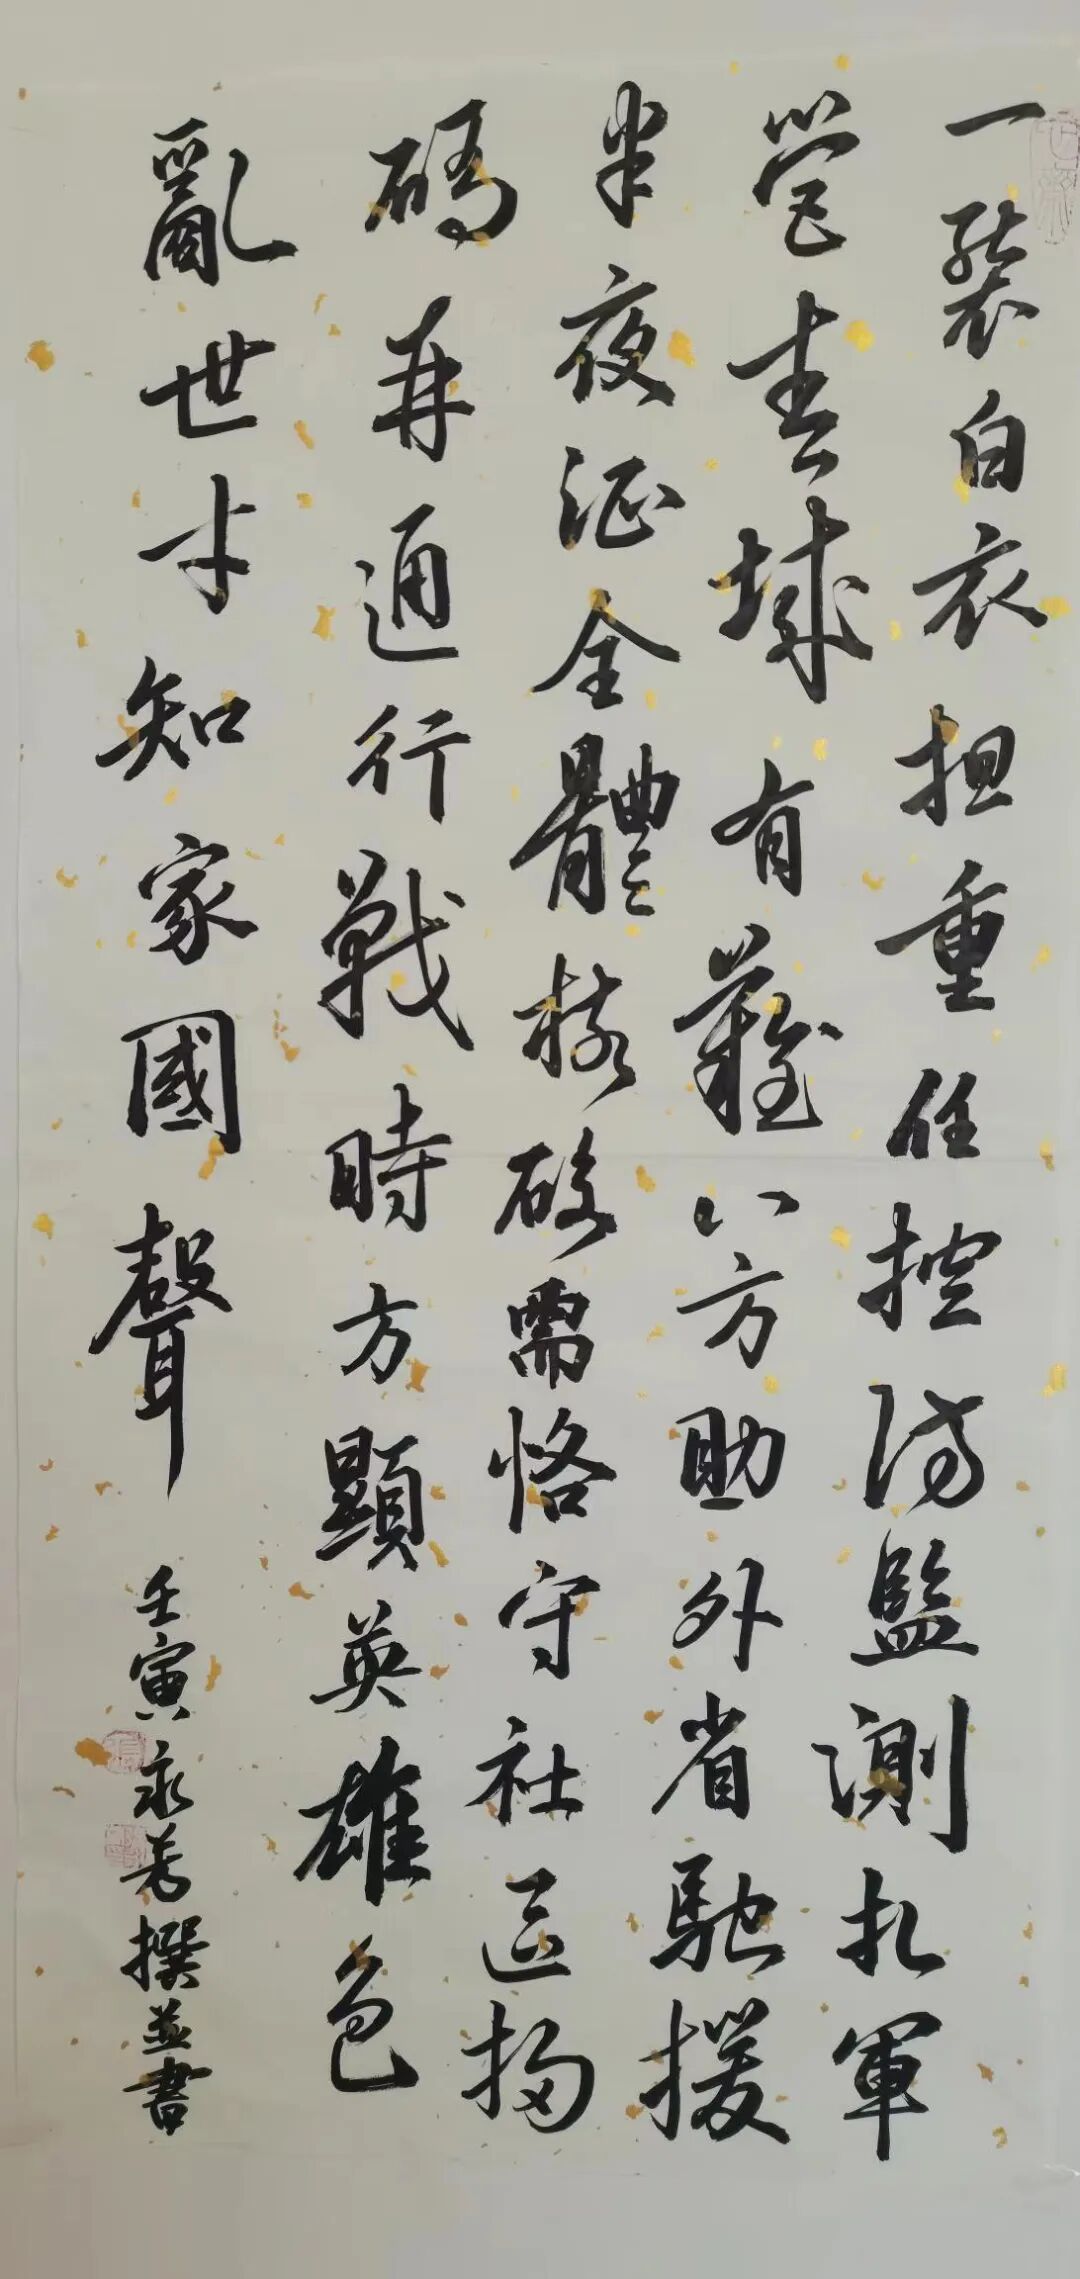 一襲白衣担重任控防監測扎軍
營圭城有難八方助外省馳援
半夜征全體核酸需恪守社區掃
碼再通行戰時方顯英雄色
亂世才知家國聲
壬寅永芳撰並書